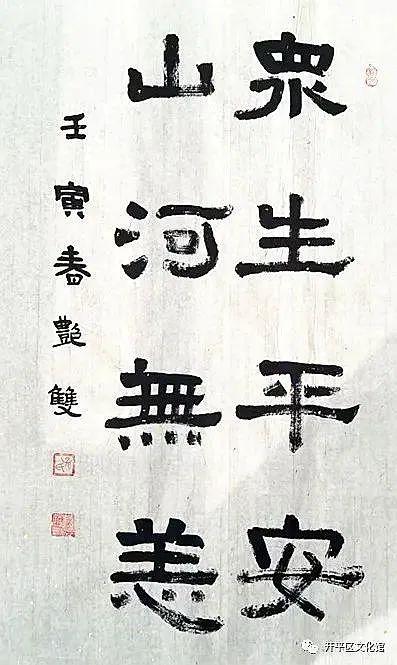 眾生平安
山河無恙
壬寅春艷雙
开平区文化馆